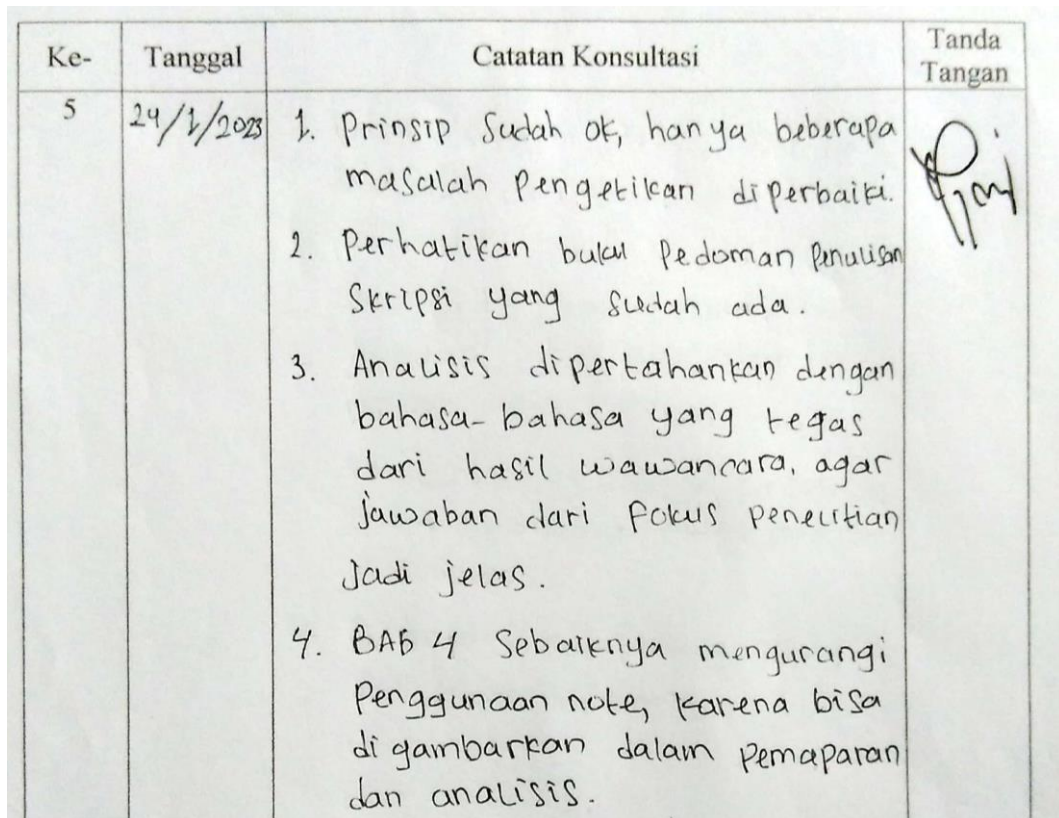 Ke- Tanggal Catatan Konsultasi Tanda Tangan
5 24/1/2023 1. Prinsip Sudah ok, hanya beberapa
masalah pengetikan diperbaiki.
2. Perhatikan buku Pedoman Penulisan
Skripsi yang sudah ada.
3. Analisis dipertahankan dengan
bahasa-bahasa yang tegas
dari hasil wawancara, agar
jawaban dari fokus penelitian
Jadi jelas.
4. BAB 4 Sebaiknya mengurangi
Penggunaan note, karena bisa
di gambarkan dalam pemaparan
dan analisis.